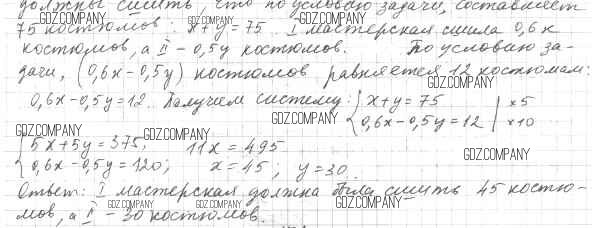 должны сшить, что по условию задачи, составляет
75 костюмов: x+y=75. I мастерская сшила 0,6x
костюмов, а II – 0,5y костюмов. По условию за-
дачи, (0,6x-0,5y) костюмов равняется 12 костюмам:
0,6x-0,5y=12. Получем систему: { x+y=75 | ×5
0,6x-0,5y=12 | ×10
{ 5x+5y=375, 11x=495
0,6x-0,5y=120; x=45; y=30.
Ответ: I мастерская должна была сшить 45 костю-
мов, а II – 30 костюмов.
GDZ.COMPANY
GDZ.COMPANY
GDZ.COMPANY
GDZ.COMPANY
GDZ.COMPANY
GDZ.COMPANY
GDZ.COMPANY
GDZ.COMPANY
GDZ.COMPANY
GDZ.COMPANY
GDZ.COMPANY
GDZ.COMPANY